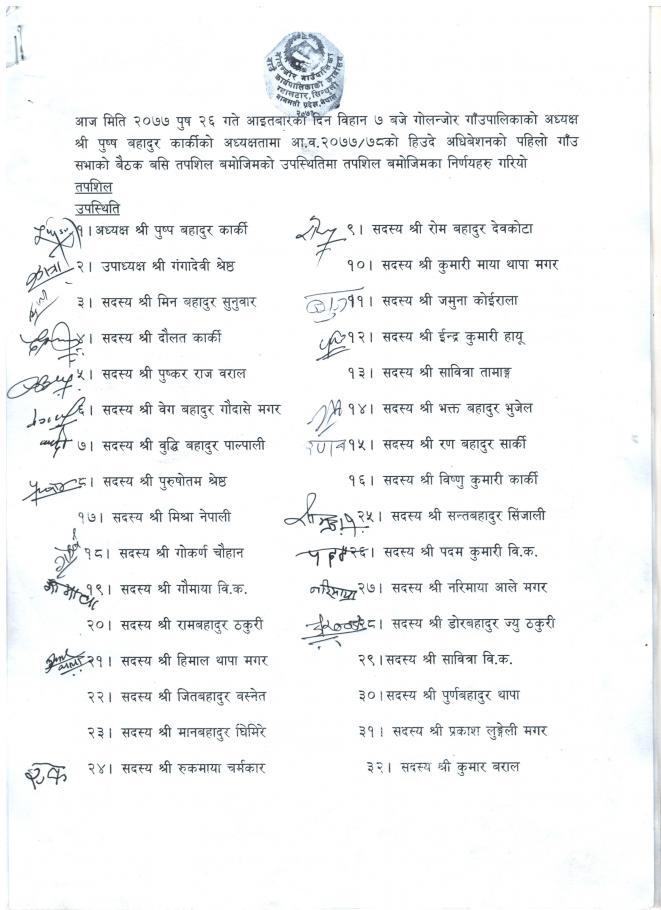 गोलन्जोर गाउँपालिका
गाउँ कार्यपालिकाको कार्यालय
गोलन्जोर, सिन्धुली
बागमती प्रदेश, नेपाल
२०७३
आज मिति २०७७ पुष २६ गते आइतबारका दिन विहान ७ बजे गोलन्जोर गाँउपालिकाको अध्यक्ष
श्री पुष्ष बहादुर कार्कीको अध्यक्षतामा आ.व.२०७७/७८को हिउदे अधिबेशनको पहिलो गाँउ
सभाको बैठक बसि तपशिल बमोजिमको उपस्थितिमा तपशिल बमोजिमका निर्णयहरु गरियो
तपशिल
उपस्थिति
१। अध्यक्ष श्री पुष्प बहादुर कार्की
२। उपाध्यक्ष श्री गंगादेवी श्रेष्ठ
३। सदस्य श्री मिन बहादुर सुनुवार
४। सदस्य श्री दौलत कार्की
५। सदस्य श्री पुष्कर राज वराल
६। सदस्य श्री वेग बहादुर गौदासे मगर
७। सदस्य श्री बुद्धि बहादुर पाल्पाली
८। सदस्य श्री पुरुषोतम श्रेष्ठ
९। सदस्य श्री रोम बहादुर देवकोटा
१०। सदस्य श्री कुमारी माया थापा मगर
११। सदस्य श्री जमुना कोईराला
१२। सदस्य श्री ईन्द्र कुमारी हायू
१३। सदस्य श्री सावित्रा तामाङ्ग
१४। सदस्य श्री भक्त बहादुर भुजेल
१५। सदस्य श्री रण बहादुर सार्की
१६। सदस्य श्री विष्णु कुमारी कार्की
१७। सदस्य श्री मिश्रा नेपाली
१८। सदस्य श्री गोकर्ण चौहान
गौमाया
१९। सदस्य श्री गौमाया बि.क.
२०। सदस्य श्री रामबहादुर ठकुरी
२१। सदस्य श्री हिमाल थापा मगर
२२। सदस्य श्री जितबहादुर वस्नेत
२३। सदस्य श्री मानबहादुर घिमिरे
२४। सदस्य श्री रुकमाया चर्मकार
२५। सदस्य श्री सन्तबहादुर सिंजाली
पदम
२६। सदस्य श्री पदम कुमारी बि.क.
नरिमाया
२७। सदस्य श्री नरिमाया आले मगर
२८। सदस्य श्री डोरबहादुर ज्यु ठकुरी
२९।सदस्य श्री सावित्रा वि.क.
३०।सदस्य श्री पुर्णबहादुर थापा
३१। सदस्य श्री प्रकाश लुङ्गेली मगर
३२। सदस्य श्री कुमार बराल